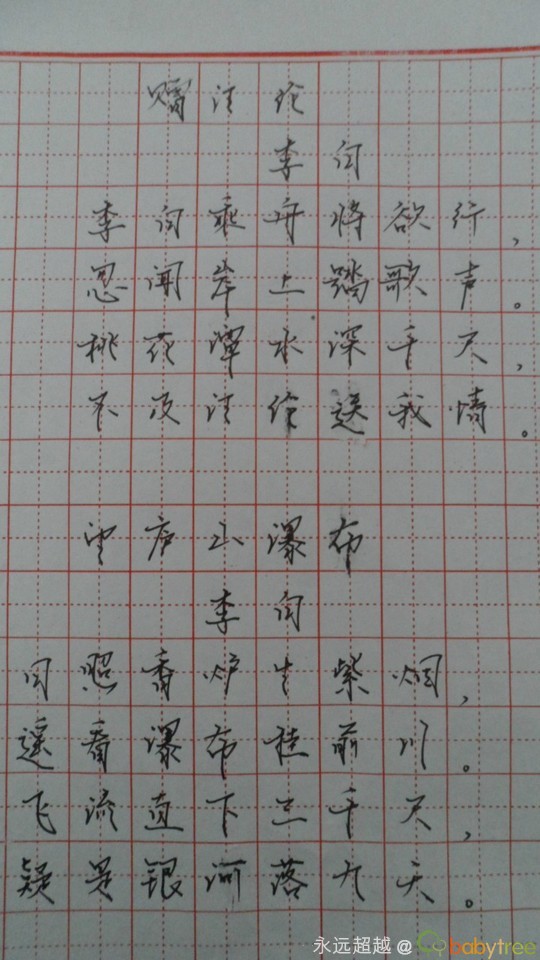 赠汪伦
李白
李白乘舟将欲行，
忽闻岸上踏歌声。
桃花潭水深千尺，
不及汪伦送我情。
望庐山瀑布
李白
日照香炉生紫烟，
遥看瀑布挂前川。
飞流直下三千尺，
疑是银河落九天。
永远超越@babytree